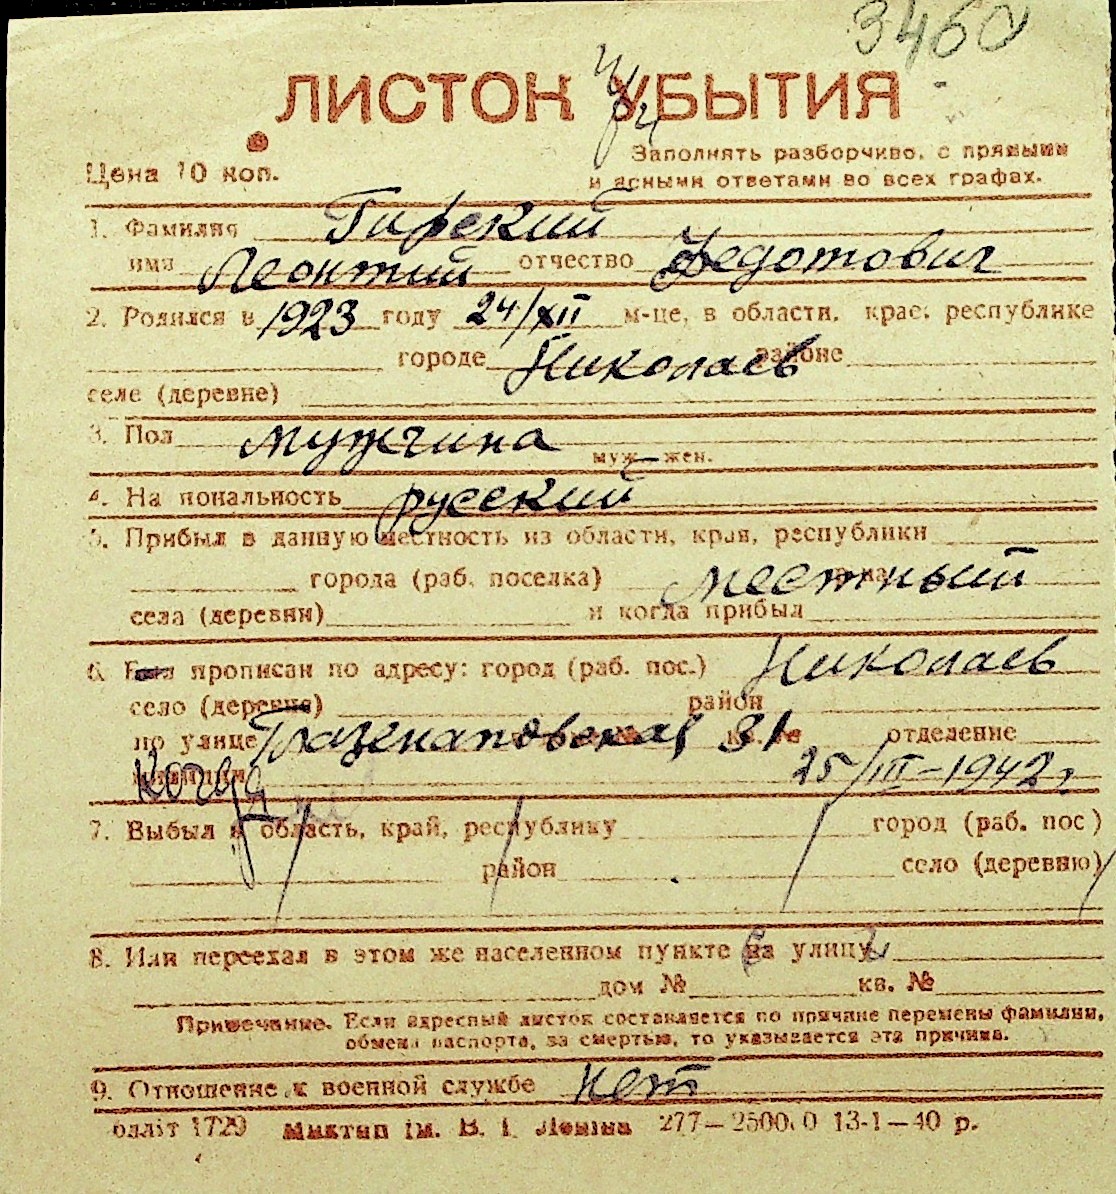 3460
ЛИСТОК УБЫТИЯ
Цена 10 коп.
Заполнять разборчиво, с прямыми
и ясными ответами во всех графах.
1. Фамилия Гирский
имя Леонтий отчество Федотович
2. Родился в 1923 году 24/XII м-це, в области, крае, республике
городе Николаев районе
селе (деревне)
3. Пол мужчина
муж.—жен.
4. Национальность русский
5. Прибыл в данную местность из области, края, республики
города (раб. поселка) местный
села (деревни) и когда прибыл
6. прописан по адресу: город (раб. пос.) Николаев
село (деревня) район
по улице Глазенаповская 31 отделение
когда 25/III–1942 г
7. Выбыл в область, край, республику город (раб. пос)
район село (деревню)
8. Или переехал в этом же населенном пункте на улицу
дом № кв. №
Примечание. Если адресный листок составляется по причине перемены фамилии,
обмена паспорта, за смертью, то указывается эта причина.
9. Отношение к военной службе нет
олліт 1729 Миктип ім. В. І. Леніна 277—2500.0 13-1—40 р.